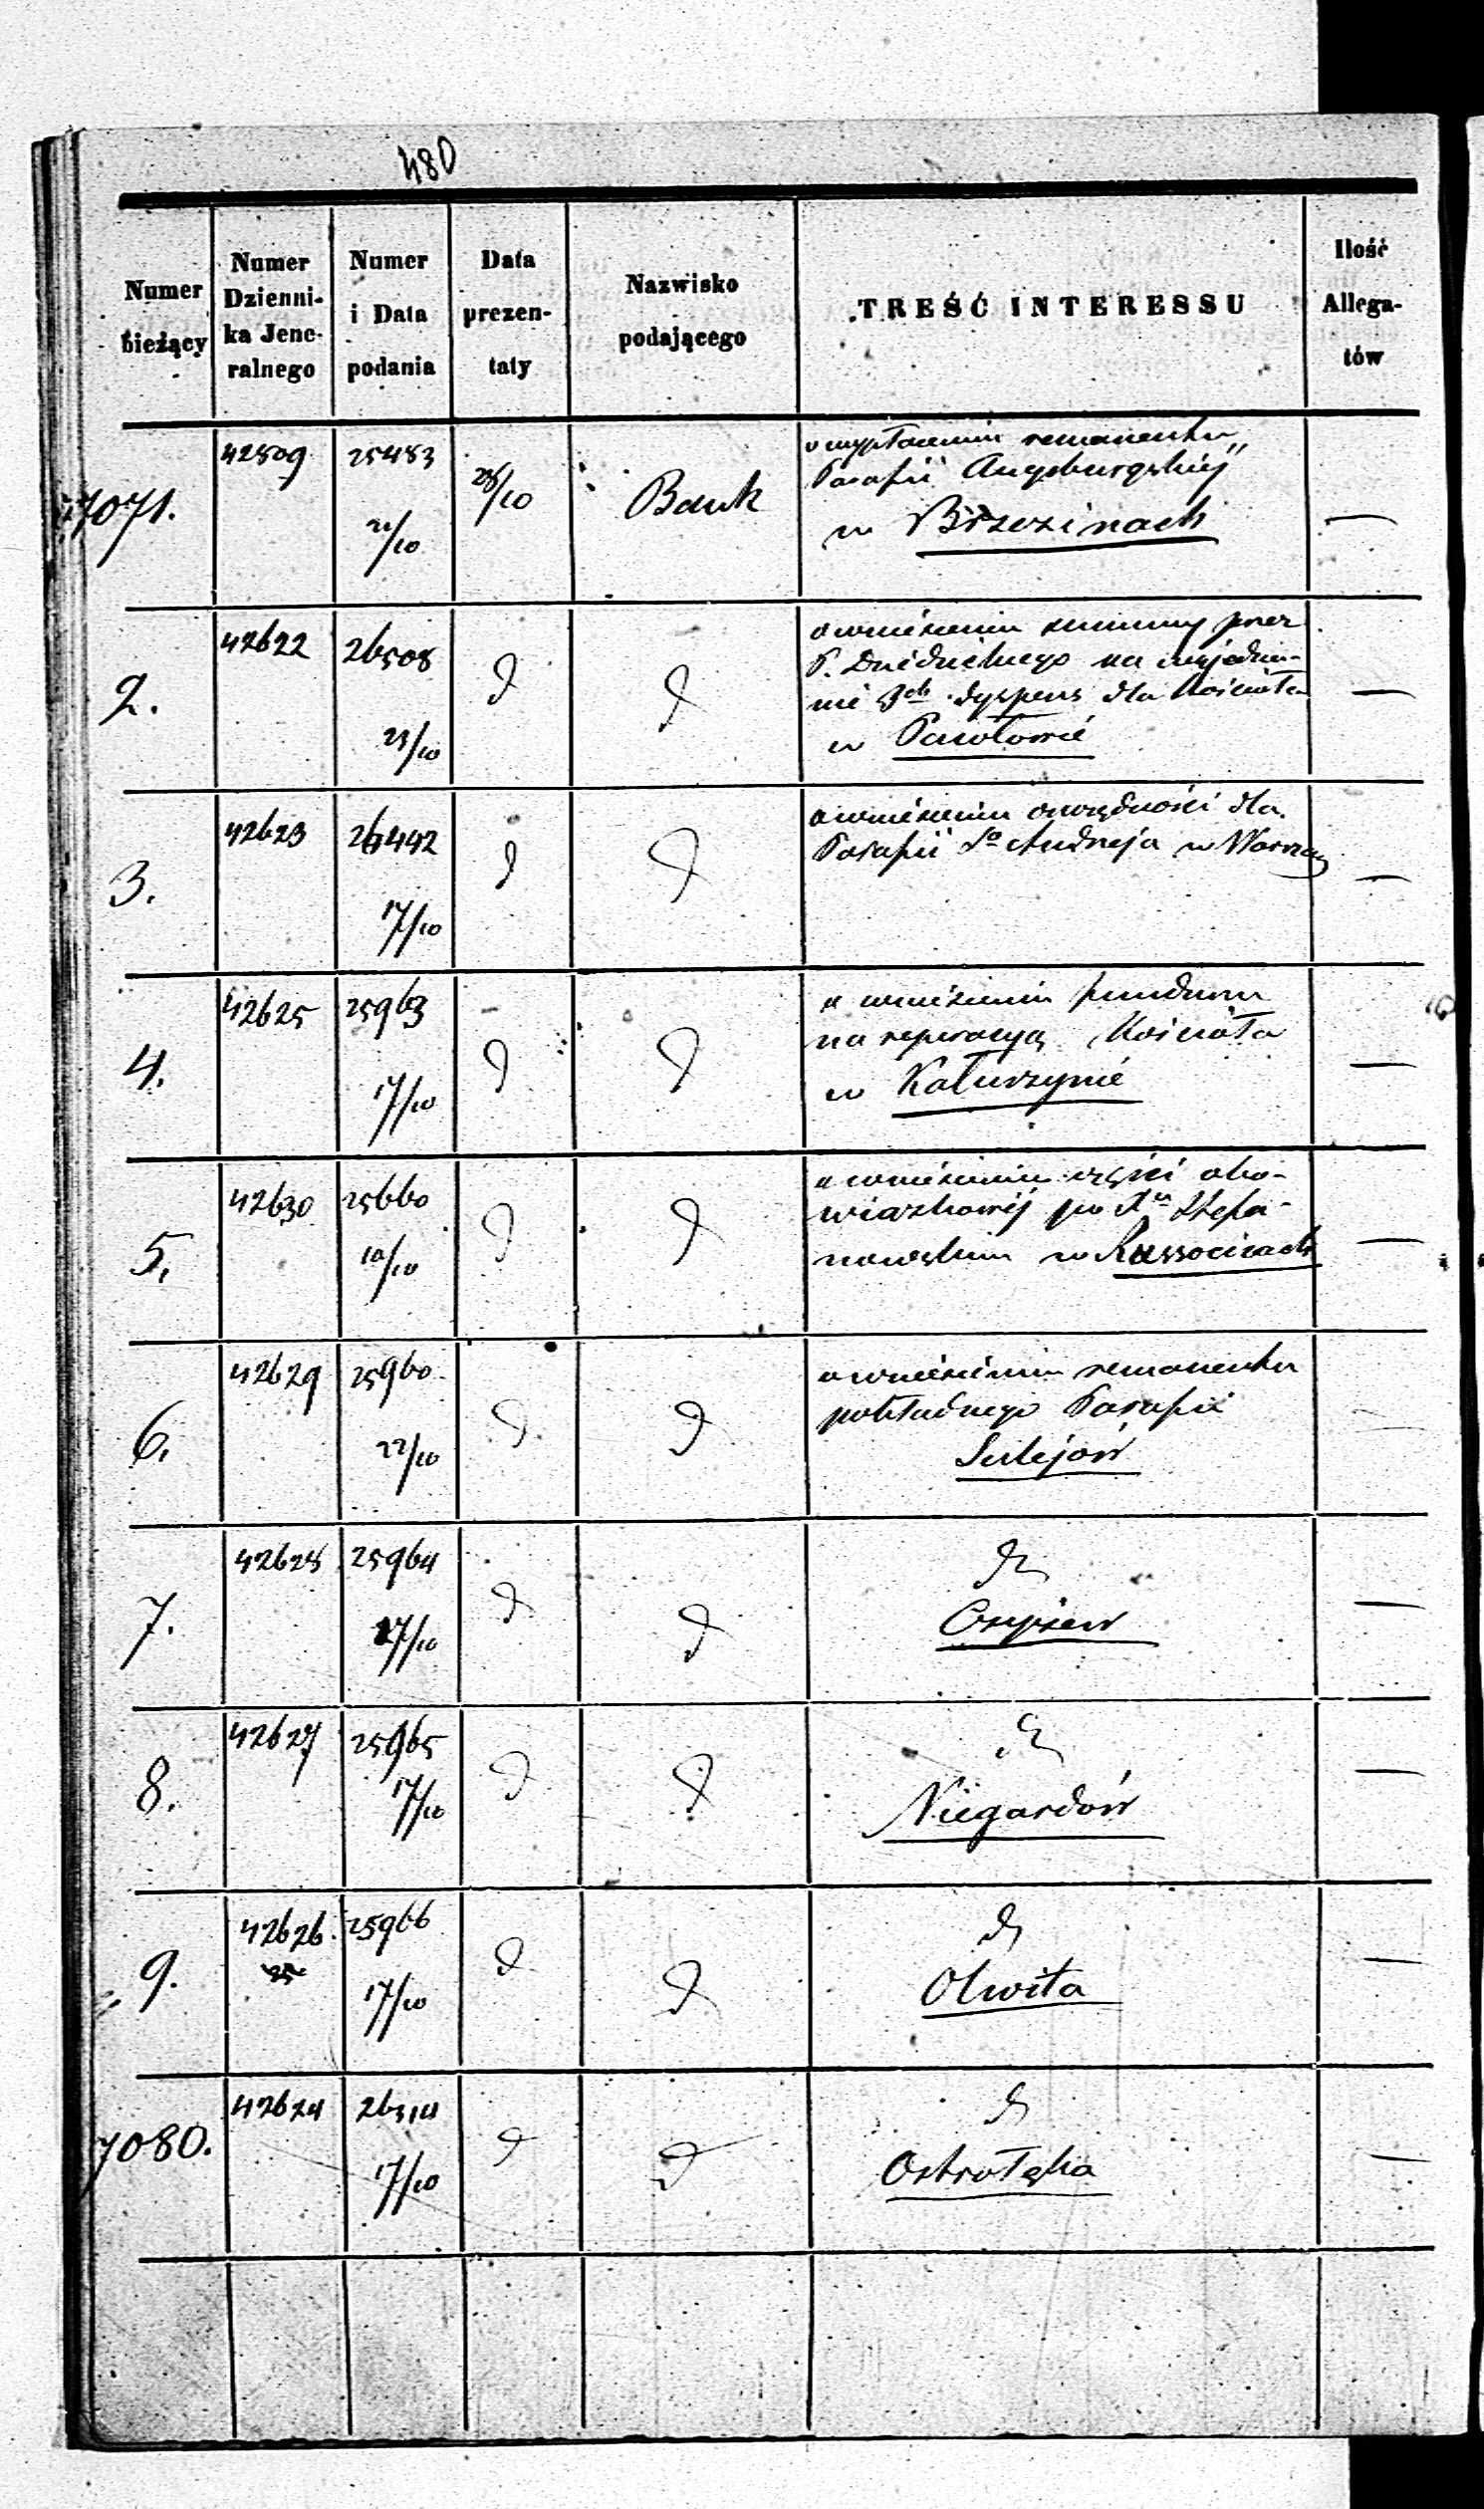 480
Numer bieżący
Numer Dzienni-ka Jene-ralnego
Numer i Data podania
Data prezen-taty
Nazwisko podającego
TREŚĆ INTERESSU
Ilość Allega-tów
7071. 42509 25483 21/10 28/10 Bank
o wypłaceniu remanentu
Parafii Augsburgskiej
w Brzezinach —
2. 42622 26508 21/10 d d
o wniesieniu summy przez
P. na wyjedna-
nie 3ch dyspens dla Kościoła
w Pawłowie —
3. 42623 26492 17/10 d d
o wniesieniu oszczędności dla
Parafii So Andrzeja w Warszay —
4. 42625 25963 17/10 d d
o wniesieniu funduszu
na reperacyą Kościoła
w Kałuszynie —
5. 42630 25660 10/10 d d
o wniesieniu części obo-
wiązkowej po Xu Stefa-
nowskim w Russocicach —
6. 42629 25960 22/10 d d
o wniesieniu remanentu
pokładnego Parafii
Sulejów —
7. 42628 25964 17/10 d d
d
—
8. 42627 25965 17/10 d d
d
Niegardów —
9. 42626 25966 17/10 d d
d
Olwita —
7080. 42624 26514 17/10 d d
d
Ostrołęka —